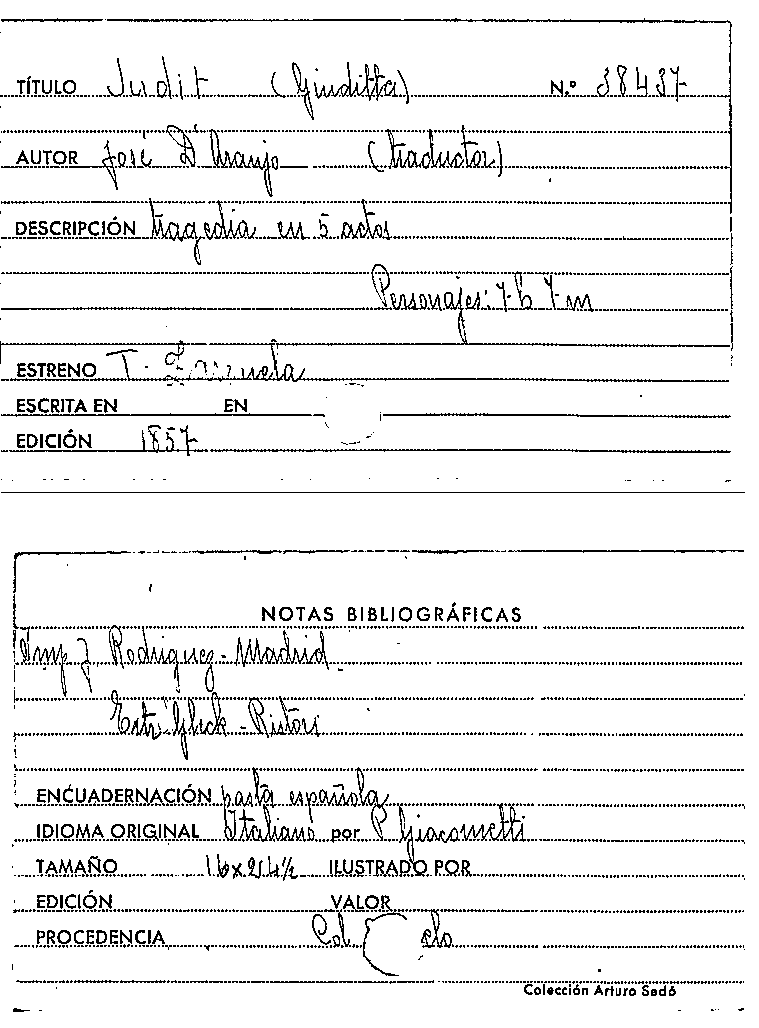 TÍTULO Judit (Giuditta) N.º 38437
AUTOR José D'Araujo (traductor)
DESCRIPCIÓN tragedia en 5 actos
Personajes: 7 h 7 m
ESTRENO T. Zarzuela
ESCRITA EN EN
EDICIÓN 1857
NOTAS BIBLIOGRÁFICAS
Imp J Rodriguez - Madrid
Ristori
ENCUADERNACIÓN pasta española
IDIOMA ORIGINAL Italiano por P Giacometti
TAMAÑO ILUSTRADO POR
EDICIÓN VALOR
PROCEDENCIA Col
Colección Arturo Sedó